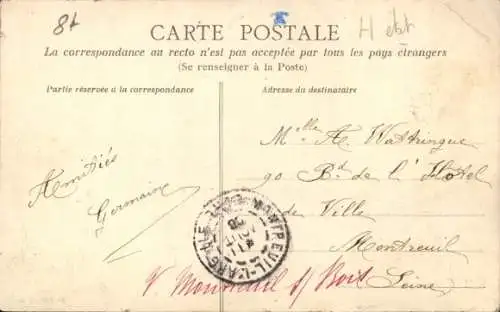 8t
H etat
CARTE POSTALE
La correspondance au recto n'est pas acceptée par tous les pays étrangers
(Se renseigner à la Poste)
Partie réservée à la correspondance
Adresse du destinataire
Amitiés
Germaine
Mlle A. Wattringue
90 Bd de l'Hotel
de Ville
Montreuil
Seine
MONTREUIL-L'ARGILLE
V. Montreuil s/ Bois